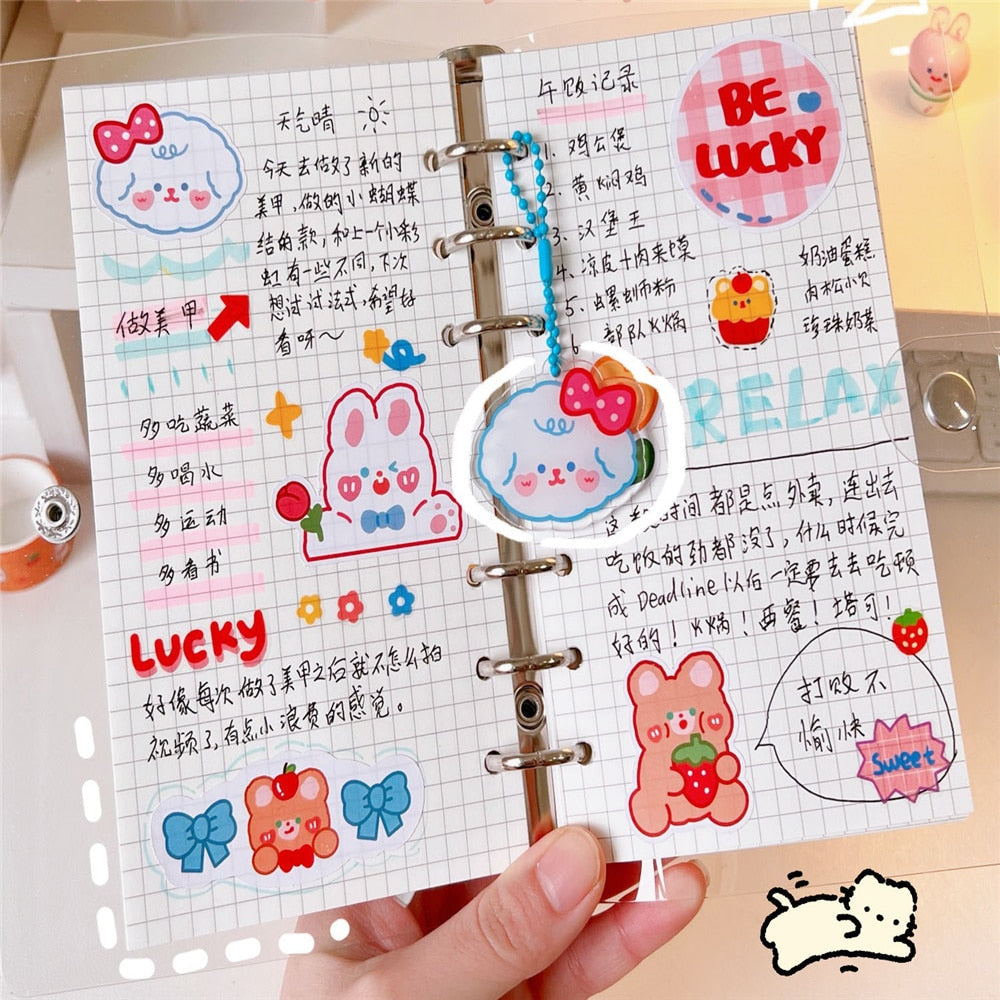 天气晴
今天去做了新的
美甲,做的小蝴蝶
结的款,和上一个小彩
虹有一些不同,下次
想试试法式,希望好
看呀~
做美甲
多吃蔬菜
多喝水
多运动
多看书
LUCKY
好像每次做了美甲之后就不怎么拍
视频了,有点小浪费的感觉。
午饭记录
1. 鸡公煲
2. 黄焖鸡
3. 汉堡王
4. 凉皮+肉夹馍
5. 螺蛳粉
6 部队火锅
BE
LUCKY
奶油蛋糕
肉松小贝
珍珠奶茶
RELAX
这 时间都是点外卖,连出去
吃饭的劲都没了,什么时候完
成Deadline以后一定要去去吃顿
好的!火锅!西餐!塔可!
打败不
愉快
Sweet